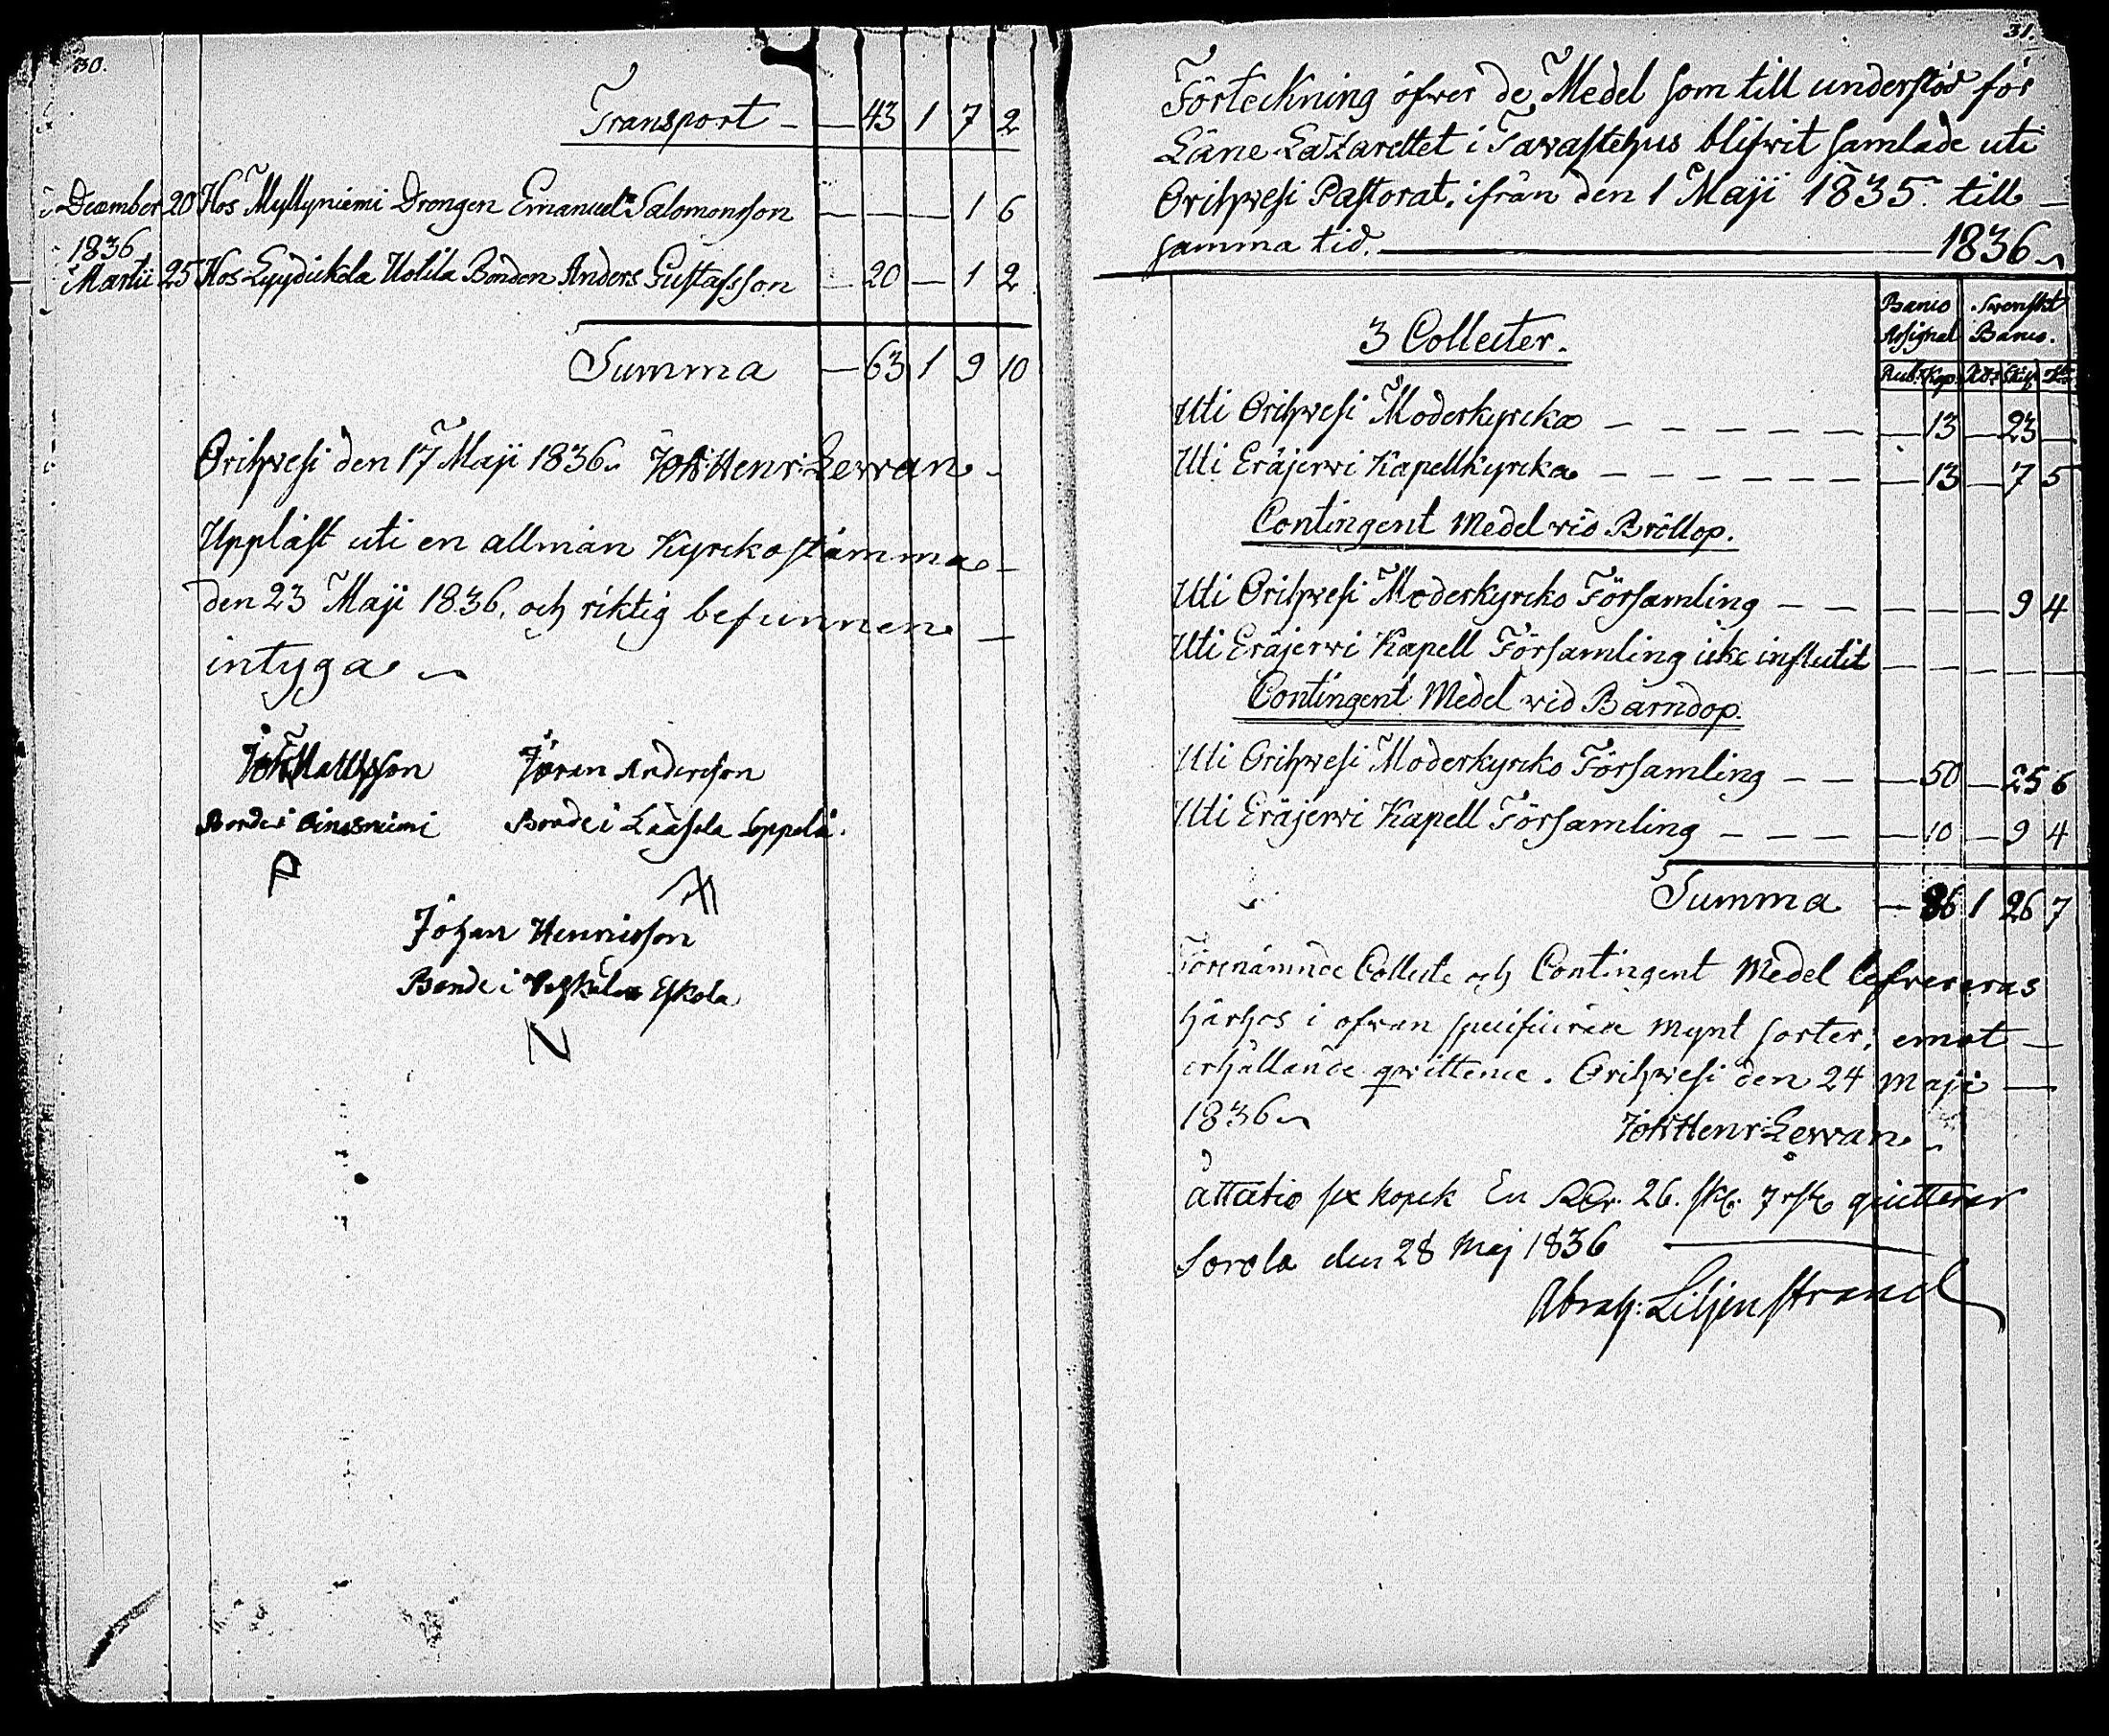 30.
Transport — — 43 1 7 2
December 20 Hos Myllyniemi Drengen Emanuel Salomonsson — — — 1 6
1836
Martii 25 Hos Lyydickala Uolila Bonden Anders Gustafsson — 20 — 1 2
Summa — 63 1 9 10
Orihwesi den 17 Maji 1836. Joh: Henr: Lewan.
Uppläst uti en allmän Kyrckostämma —
den 23 Maji 1836, och riktig befunnen —
intyga
Joh Mattsson Jöran Andersson
Bonde i Bonde i Laasola Seppälä.
Johan Henricsson
Bonde i Eskola
N
31.
Förteckning öfver de Medel som till understöd för
Läne Lazarettet i Tawastehus blifwit samlade uti
Orihwesi Pastorat, ifrån den 1 Maji 1835. till —
samma tid. — 1836
Banco Swenskt
Assignat Banco.
Rub: Kop: Rdr Skil: rst:
3 Collecter.
Uti Orihwesi Moderkyrcka — — — — — — 13 — 23 —
Uti Eräjerwi Kapellkyrcka — — — — — — — 13 — 7 5
Contingent Medel wid Bröllop.
Uti Orihwesi Moderkyrcko Församling — — — — — 9 4
Uti Eräjerwi Kapell Församling icke influtit — — — — —
Contingent Medel wid Barndop.
Uti Orihwesi Moderkyrcko Församling — — — 50 — 25 6
Uti Eräjerwi Kapell Församling — — — — — 10 — 9 4
Summa — 86 1 26 7
Förenämnde Collecte och Contingent Medel lefwereras
härhos i ofwan specificerade mynt sorter, emot —
erhållande qwittence. Orihwesi den 24 Maji —
1836 Joh: Henr: Lewan.
åttatio sex kopek En RDr. 26. sk. 7 rst quitterar
Sorola den 28 Maj 1836
Abrah: Liljenstrand